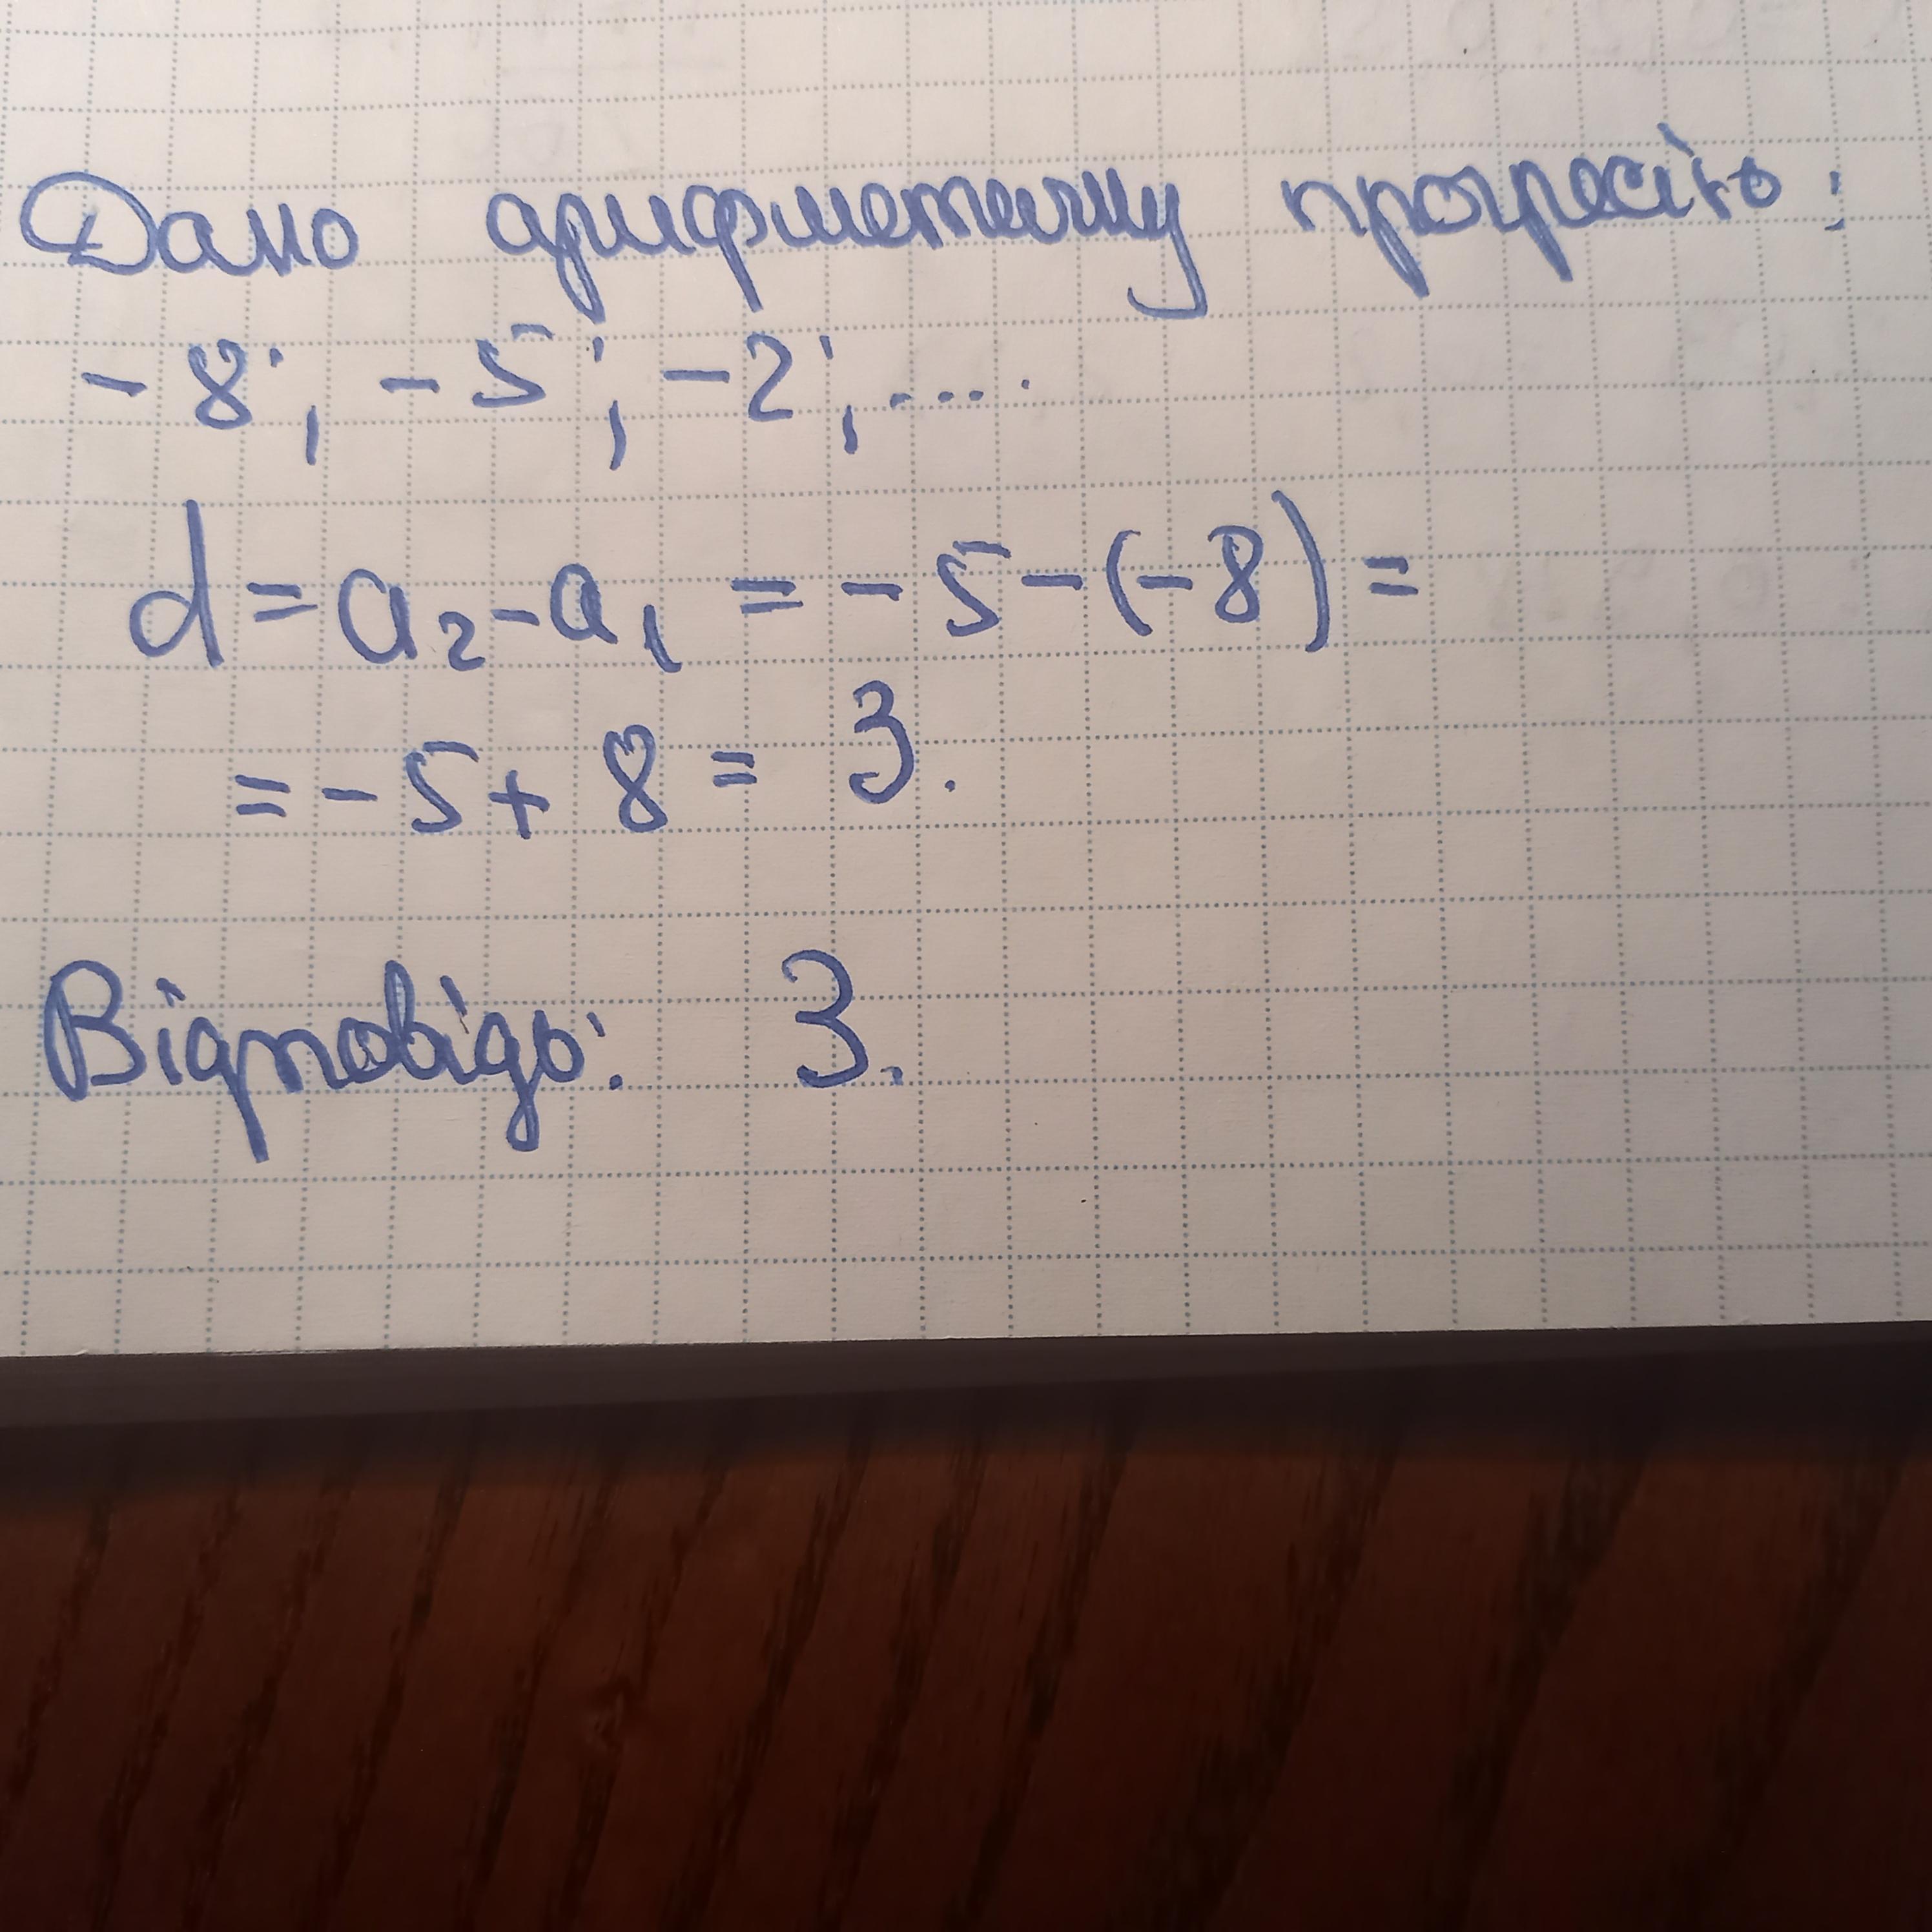 Дано арифметичну прогресію:
-8; -5; -2; ....
d = a₂ - a₁ = -5 - (-8) =
= -5 + 8 = 3.
Відповідь: 3.